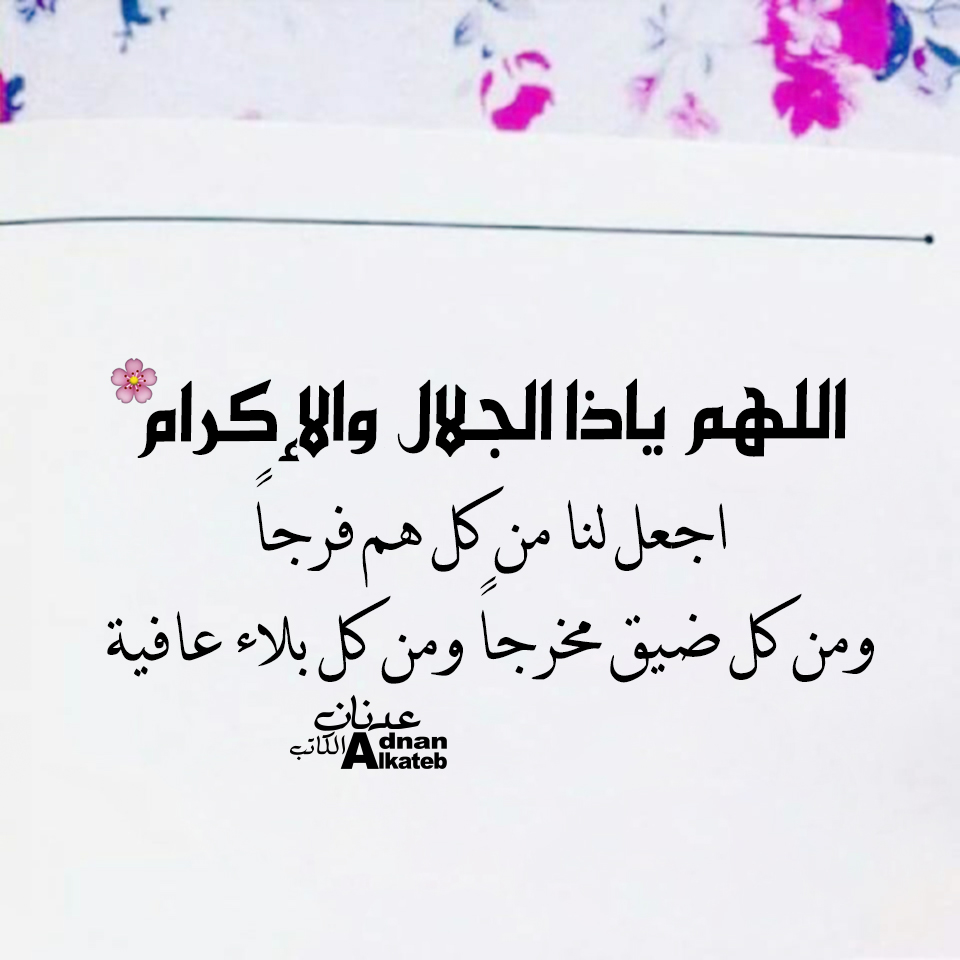 اللهم ياذا الجلال والإكرام
اجعل لنا من كل هم فرجاً
ومن كل ضيق مخرجاً ومن كل بلاء عافية
عدنان
الكاتب Adnan
Alkateb